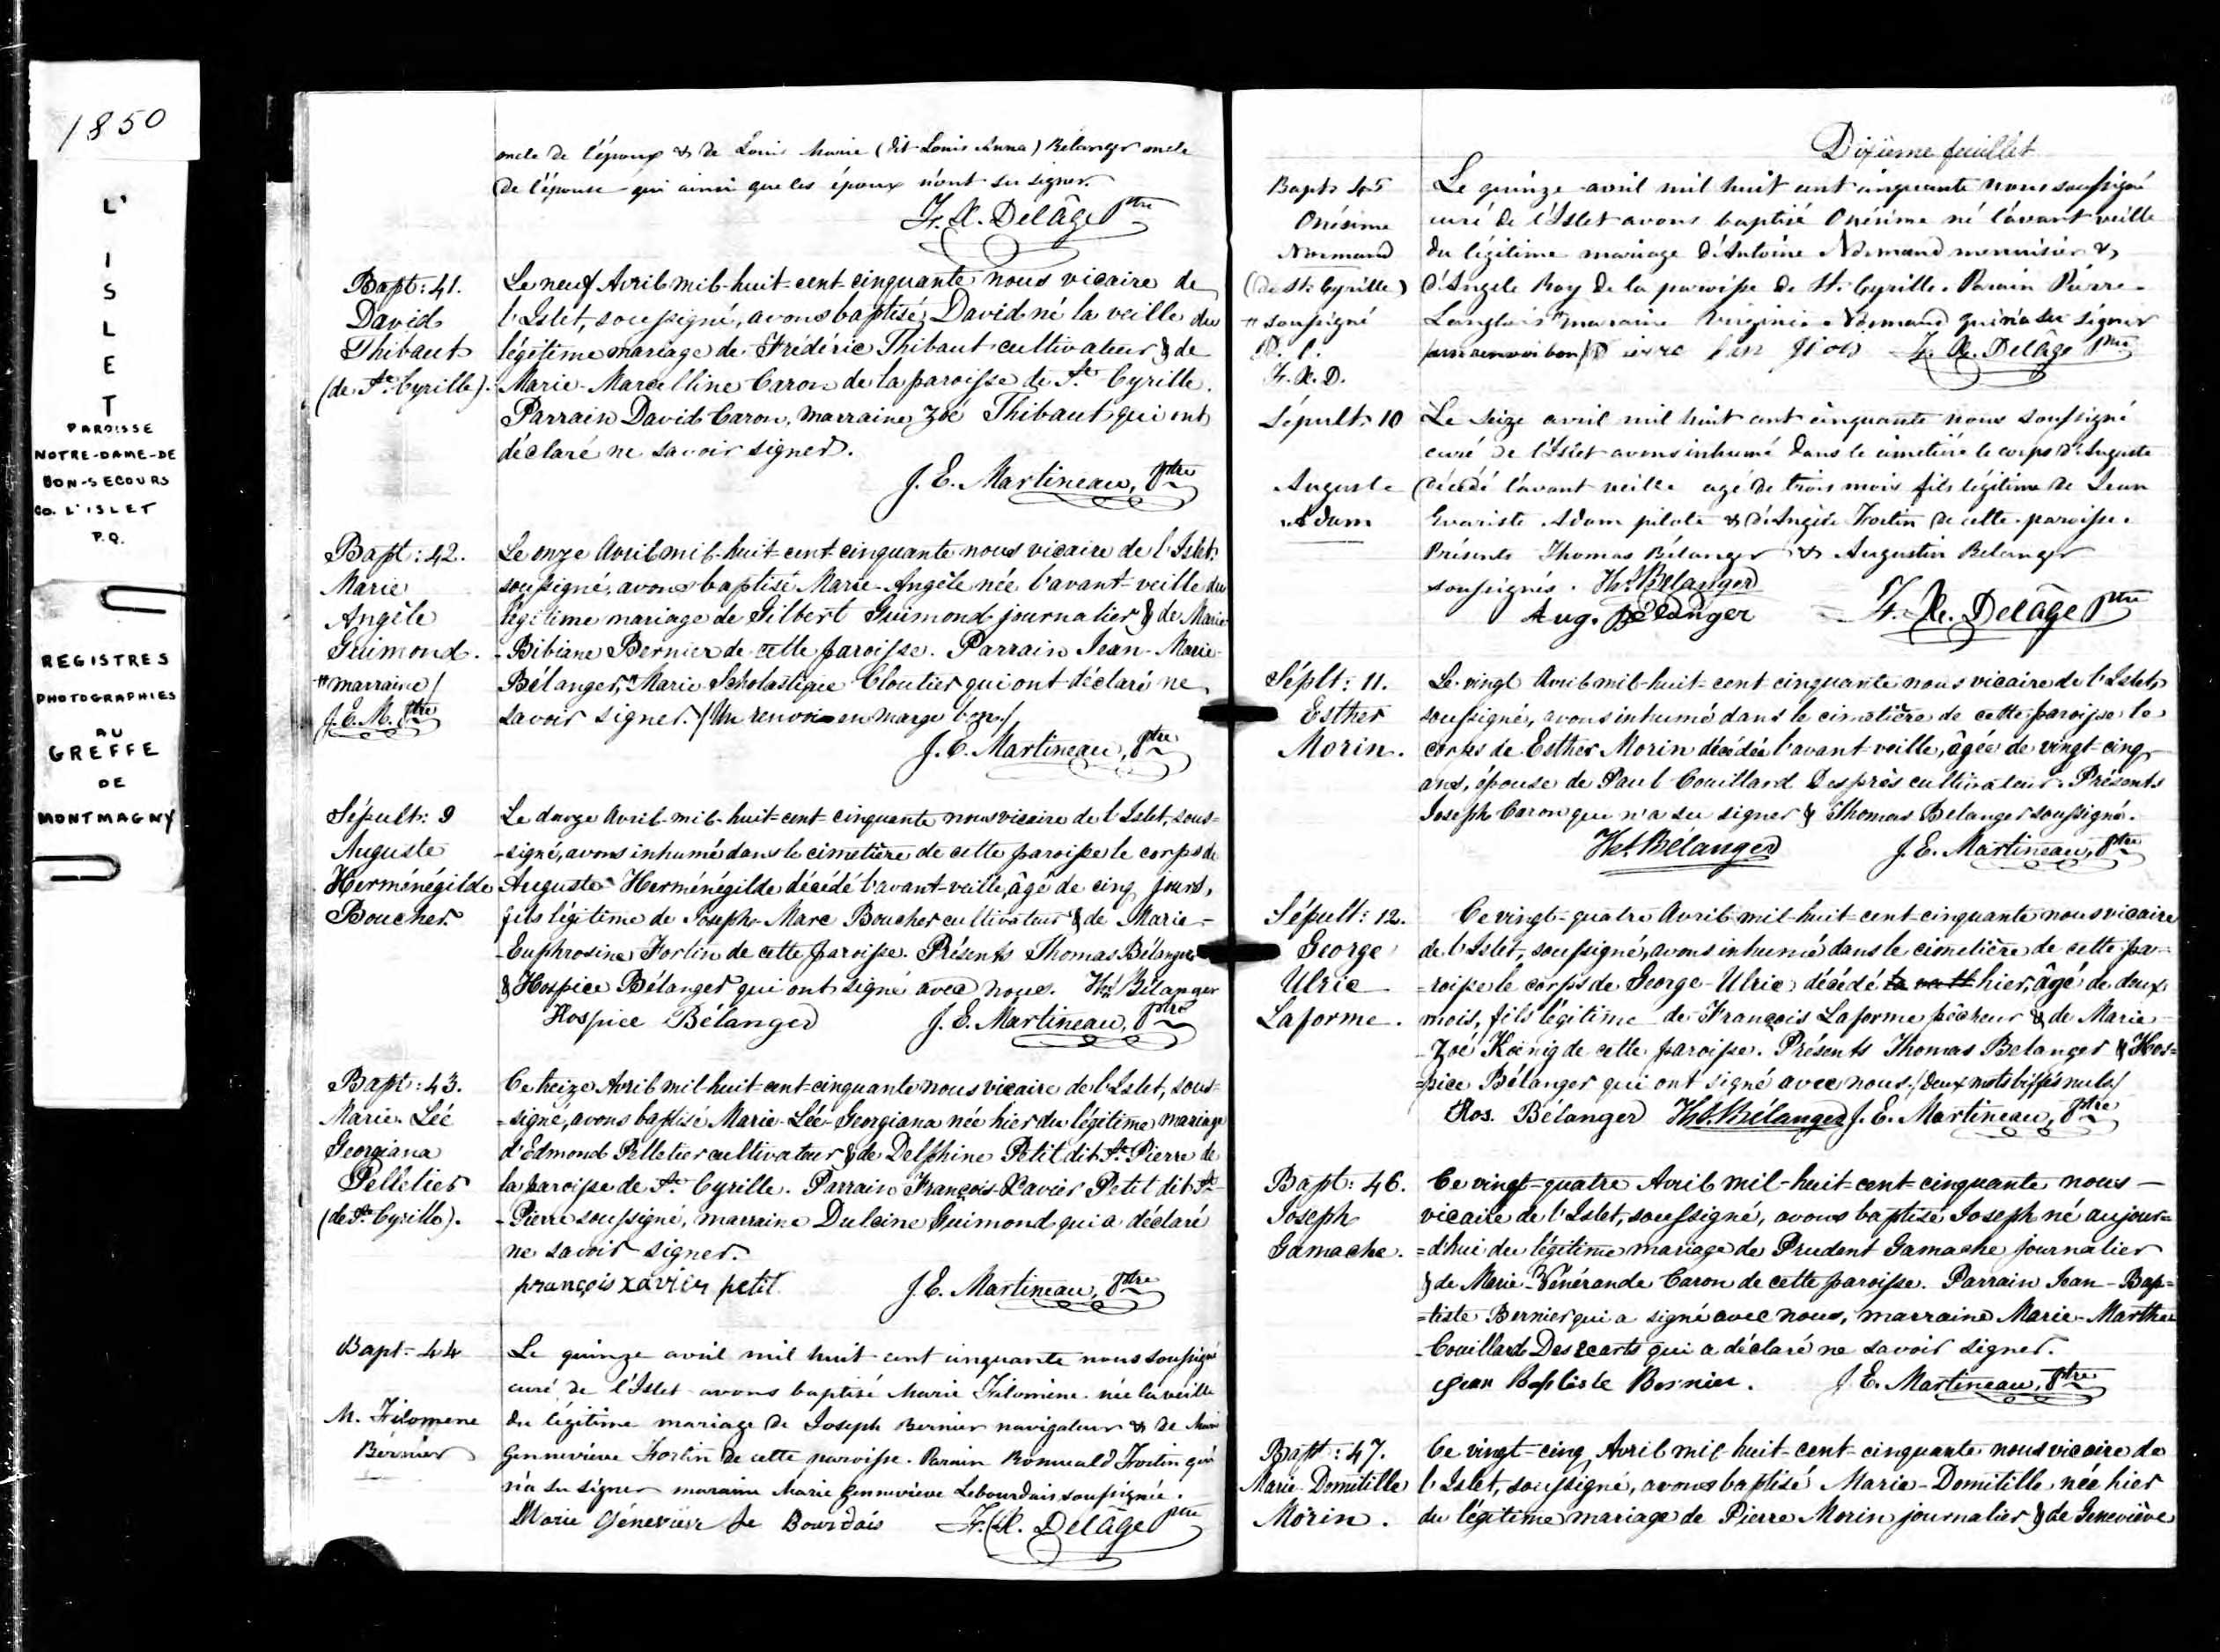 1850
L'
I
S
L
E
T
PAROISSE
NOTRE-DAME-DE
BON-SECOURS
Co. L'ISLET
P.Q.
REGISTRES
PHOTOGRAPHIES
AU
GREFFE
DE
MONTMAGNY
oncle de l'époux & de Louis Marie (dit Louis Anna) Bélanger oncle
de l'épouse qui ainsi que les époux n'ont su signer.
F. X. Delâge Ptre
Bapt: 41.
David
Thibaut
(de St. Cyrille).
Le neuf Avril mil-huit-cent-cinquante nous vicaire de
l'Islet, soussigné, avons baptisé David né la veille du
légitime mariage de Frédéric Thibaut cultivateur & de
Marie-Marcelline Caron de la paroisse de St. Cyrille.
Parrain David Caron, marraine Zoé Thibaut qui ont
déclaré ne savoir signer.
J. E. Martineau, Ptre
Bapt: 42.
Marie
Angèle
Guimond.
"marraine/
J. E. M. Ptre
Le onze Avril mil-huit-cent cinquante nous vicaire de l'Islet,
soussigné, avons baptisé Marie-Angèle née l'avant-veille du
légitime mariage de Gilbert Guimond journalier & de Marie-
-Bibiane Bernier de cette paroisse. Parrain Jean-Marie
Bélanger," Marie Scholastique Cloutier qui ont déclaré ne
savoir signer. /Un renvoi en marge bon./
J. E. Martineau, Ptre
Sépult: 9
Auguste
Herménégilde
Boucher.
Le douze Avril mil-huit-cent-cinquante nous vicaire de l'Islet, sous-
-signé, avons inhumé dans le cimetière de cette paroisse le corps de
Auguste Herménégilde décédé l'avant-veille, âgé de cinq jours,
fils légitime de Joseph-Marc Boucher cultivateur & de Marie-
-Euphrosine Fortin de cette paroisse. Présents Thomas Bélanger
& Hospice Bélanger qui ont signé avec nous. Ths Bélanger
Hospice Bélanger J. E. Martineau, Ptre
Bapt: 43.
Marie-Léé
Georgiana
Pelletier
(de St. Cyrille).
Ce treize Avril mil-huit-cent-cinquante nous vicaire de l'Islet, sous-
=signé, avons baptisé Marie-Léé-Georgiana née hier du légitime mariage
d'Edmond Pelletier cultivateur & de Delphine Petit dit St. Pierre de
la paroisse de St. Cyrille. Parrain François-Xavier Petit dit St-
-Pierre soussigné, marraine Dulcine Guimond qui a déclaré
ne savoir signer.
françois xavier petit J. E. Martineau, Ptre
Bapt- 44
M. Filomene
Bernier
Le quinze avril mil huit-cent cinquante nous soussigné
curé de l'Islet avons baptisé Marie Filomène née la veille
du légitime mariage de Joseph Bernier navigateur & de Marie
Gennevieve Fortin de cette paroisse. Parain Romuald Fortin qui
n'a su signer maraine Marie Gennevieve Lebourdais soussignée.
Marie Génevieve Le Bourdais F. X. Delâge Ptre
Dixième feuillet
Bapt: 45
Onésime
Normand
(de St: Cyrille)
" soussigné
F. X. D.
Le quinze avril mil huit cent cinquante nous soussigné
curé de l'Islet avons baptisé Onésime né l'avant veille
du légitime mariage d'Antoine Normand menuisier &
d'Angele Roy de la paroisse de St. Cyrille. Parain Pierre
Langlois " maraine Virginie Normand qui n'a su signer
F. X. Delâge Ptre
Sépult: 10
Auguste
Adam
Le seize avril mil huit cent cinquante nous soussigné
curé de l'Islet avons inhumé dans le cimetière le corps d'Auguste
décédé l'avant veille agé de trois mois fils légitime de Jean
Evariste Adam pilote & d'Angele Fortin de cette paroisse.
Présents Thomas Bélanger & Augustin Belanger
soussignés. Ths. Bélanger
Aug. Bélanger F. X. Delâge Ptre
Séplt: 11.
Esther
Morin.
Le vingt Avril mil-huit-cent-cinquante nous vicaire de l'Islet,
soussigné, avons inhumé dans le cimetière de cette paroisse le
corps de Esther Morin décédée l'avant-veille, âgée de vingt-cinq
ans, épouse de Paul Couillard Desprès cultivateur. Présents
Joseph Caron qui n'a su signer & Thomas Belanger soussigné.
Ths. Bélanger J. E. Martineau, Ptre
Sépult: 12.
George
Ulric
Laforme.
Ce vingt-quatre Avril mil-huit-cent-cinquante nous vicaire
de l'Islet, soussigné, avons inhumé dans le cimetière de cette pa-
=roisse le corps de George-Ulric décédé hier, âgé de deux
mois, fils légitime de François Laforme pêcheur & de Marie-
-Zoé Kœnig de cette paroisse. Présents Thomas Belanger & Hos=
=pice Bélanger qui ont signé avec nous. /Deux mots biffés nuls/
Hos. Bélanger Ths. Bélanger J. E. Martineau, Ptre
Bapt: 46.
Joseph
Gamache.
Ce vingt-quatre Avril mil-huit-cent-cinquante nous-
vicaire de l'Islet, soussigné, avons baptisé Joseph né aujour=
=d'hui du légitime mariage de Prudent Gamache journalier
& de Marie-Vénérande Caron de cette paroisse. Parrain Jean-Bap=
=tiste Bernier qui a signé avec nous, marraine Marie-Marthe
-Couillard Des ecarts qui a déclaré ne savoir signer.
Jean Baptiste Bernier. J. E. Martineau, Ptre
Bapt: 47.
Marie-Domitille
Morin.
Ce vingt-cinq Avril mil-huit-cent-cinquante nous vicaire de
l'Islet, soussigné, avons baptisé Marie-Domitille née hier
du légitime mariage de Pierre Morin journalier & de Geneviève